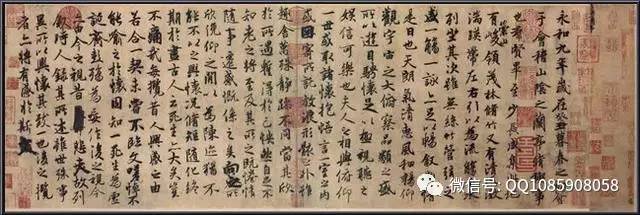 永和九年歲在癸丑暮春之初會
于會稽山陰之蘭亭脩稧事
也群賢畢至少長咸集此地
有崇山峻領茂林脩竹又有清流激
湍暎帶左右引以為流觴曲水
列坐其次雖無絲竹管弦之
盛一觴一詠亦足以暢敘幽情
是日也天朗氣清惠風和暢仰
觀宇宙之大俯察品類之盛
所以遊目騁懷足以極視聽之
娛信可樂也夫人之相與俯仰
一世或取諸懷抱悟言一室之內
或因寄所託放浪形骸之外雖
趣舍萬殊靜躁不同當其欣
於所遇蹔得於己怏然自足不
知老之將至及其所之既惓情
隨事遷感慨係之矣向之所
欣俛仰之閒以為陳跡猶不
能不以之興懷況脩短隨化終
期於盡古人云死生亦大矣豈
不痛哉每攬昔人興感之由
若合一契未嘗不臨文嗟悼不
能喻之於懷固知一死生為虛
誕齊彭殤為妄作後之視今
亦由今之視昔悲夫故列
敘時人錄其所述雖世殊事
異所以興懷其致一也後之攬
者亦將有感於斯文
微信号: QQ1085908058